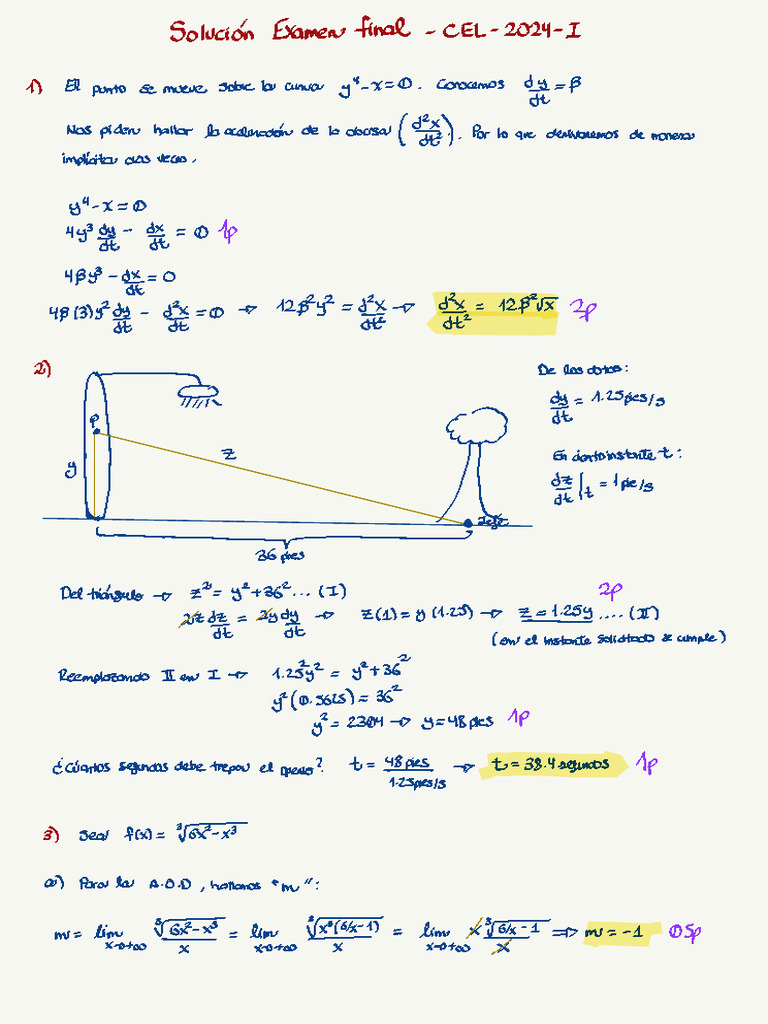 Solución Examen final - CEL-2024-I
1) El punto se mueve sobre la curva y⁴-x=0. Conocemos dy/dt = β
Nos piden hallar la aceleración de la abscisa (d²x/dt²). Por lo que derivaremos de manera
implícita dos veces.
y⁴-x=0
4y³ dy/dt - dx/dt = 0 1p
4βy³ - dx/dt = 0
4β(3)y² dy/dt - d²x/dt² = 0 → 12β²y² = d²x/dt² → d²x/dt² = 12β²√x 2p
2)
De los datos:
dy/dt = 1.25 pies/s
En cierto instante t:
dz/dt|t = 1 pie/s
P
y
z
36 pies
Del triángulo → z² = y²+36² ... (I) 2p
2z dz/dt = 2y dy/dt → z(1) = y(1.25) → z = 1.25y .... (II)
(en el instante solicitado se cumple)
Reemplazando II en I → 1.25²y² = y²+36²
y²(0.5625) = 36²
y² = 2304 → y = 48 pies 1p
¿Cuántos segundos debe trepar el? t = 48 pies / 1.25 pies/s → t = 38.4 segundos 1p
3) Sea f(x) = ³√(6x²-x³)
a) Para la A.O.D, hallamos "m":
m = lim x→+∞ ³√(6x²-x³) / x = lim x→+∞ ³√(x³(6/x-1)) / x = lim x→+∞ x ³√(6/x-1) / x ⇒ m = -1 0.5p